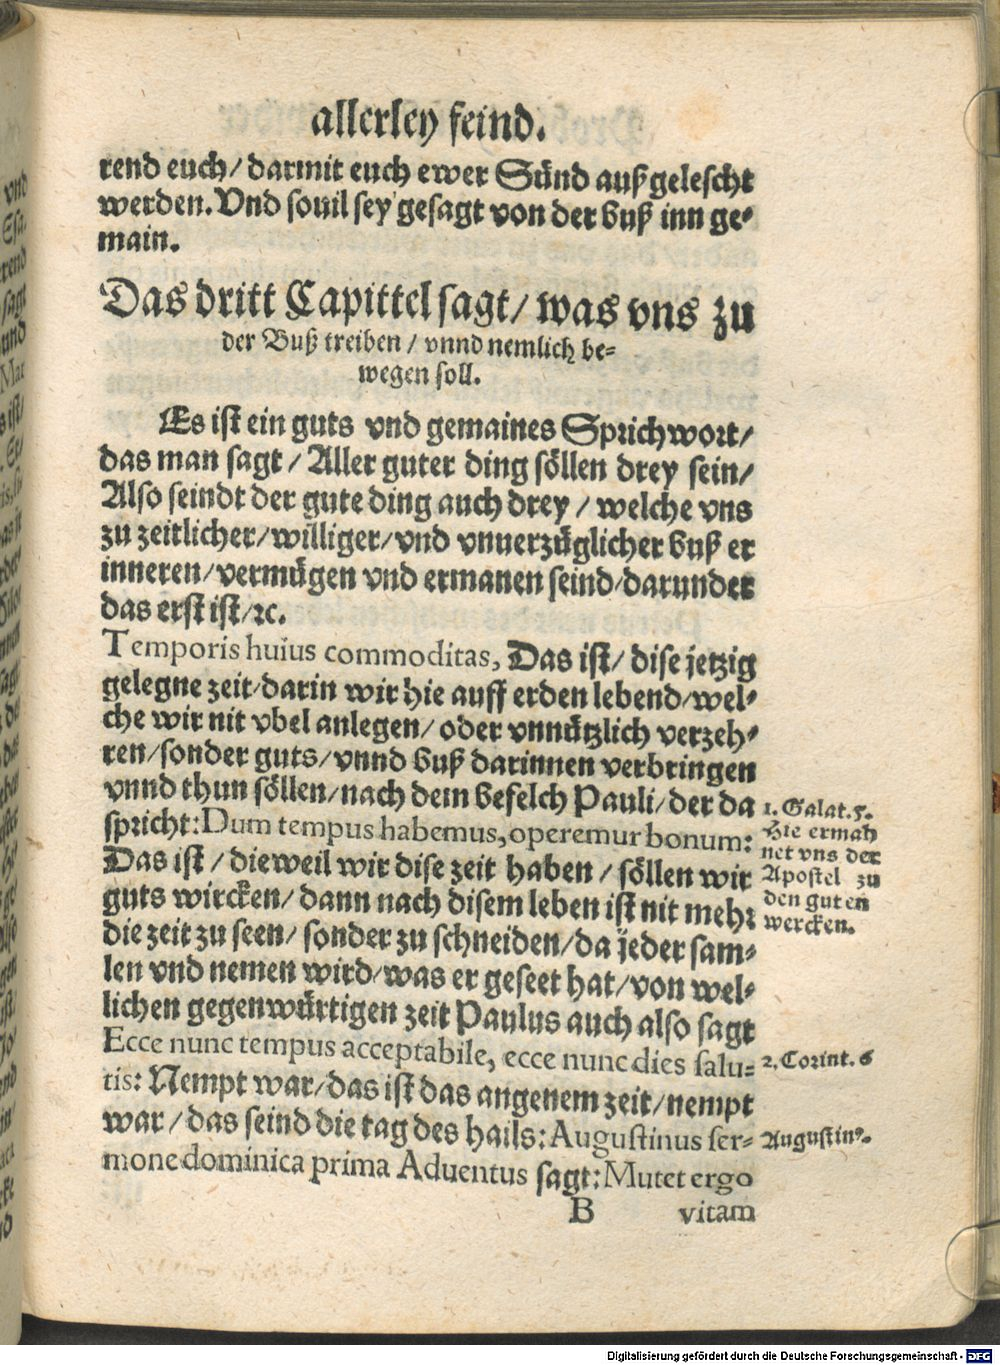 allerley feind.
rend euch/ darmit euch ewer Sünd außgelescht
werden. Vnd souil sey gesagt von der buß inn ge-
main.
Das dritt Capittel sagt/ was vns zu
der Buß treiben/ vnnd nemlich be-
wegen soll.
Es ist ein guts vnd gemaines Sprichwort/
das man sagt/ Aller guter ding söllen drey sein/
Also seindt der gute ding auch drey/ welche vns
zu zeitlicher/ williger/ vnd vnuerzüglicher buß er
inneren/ vermügen vnd ermanen seind/ darunder
das erst ist/ ꝛc.
Temporis huius commoditas, Das ist/ dise jetzig
gelegne zeit/ darin wir hie auff erden lebend/ wel-
che wir nit vbel anlegen/ oder vnnützlich verzeh-
ren/ sonder guts/ vnnd buß darinnen verbringen
vnnd thun söllen/ nach dem befelch Pauli/ der da
spricht: Dum tempus habemus, operemur bonum:
Das ist/ dieweil wir dise zeit haben/ söllen wir
guts wircken/ dann nach disem leben ist nit mehr
die zeit zu seen/ sonder zu schneiden/ da jeder sam-
len vnd nemen wird/ was er geseet hat/ von wel-
lichen gegenwürtigen zeit Paulus auch also sagt
Ecce nunc tempus acceptabile, ecce nunc dies salu-
tis: Nempt war/ das ist das angenem zeit/ nempt
war/ das seind die tag des hails: Augustinus ser-
mone dominica prima Aduentus sagt: Mutet ergo
B vitam
1. Galat. 5.
Hie ermah
net vns der
Apostel zu
den guten
wercken.
2. Corint. 6
Augustinꝰ.
Digitalisierung gefördert durch die Deutsche Forschungsgemeinschaft - DFG